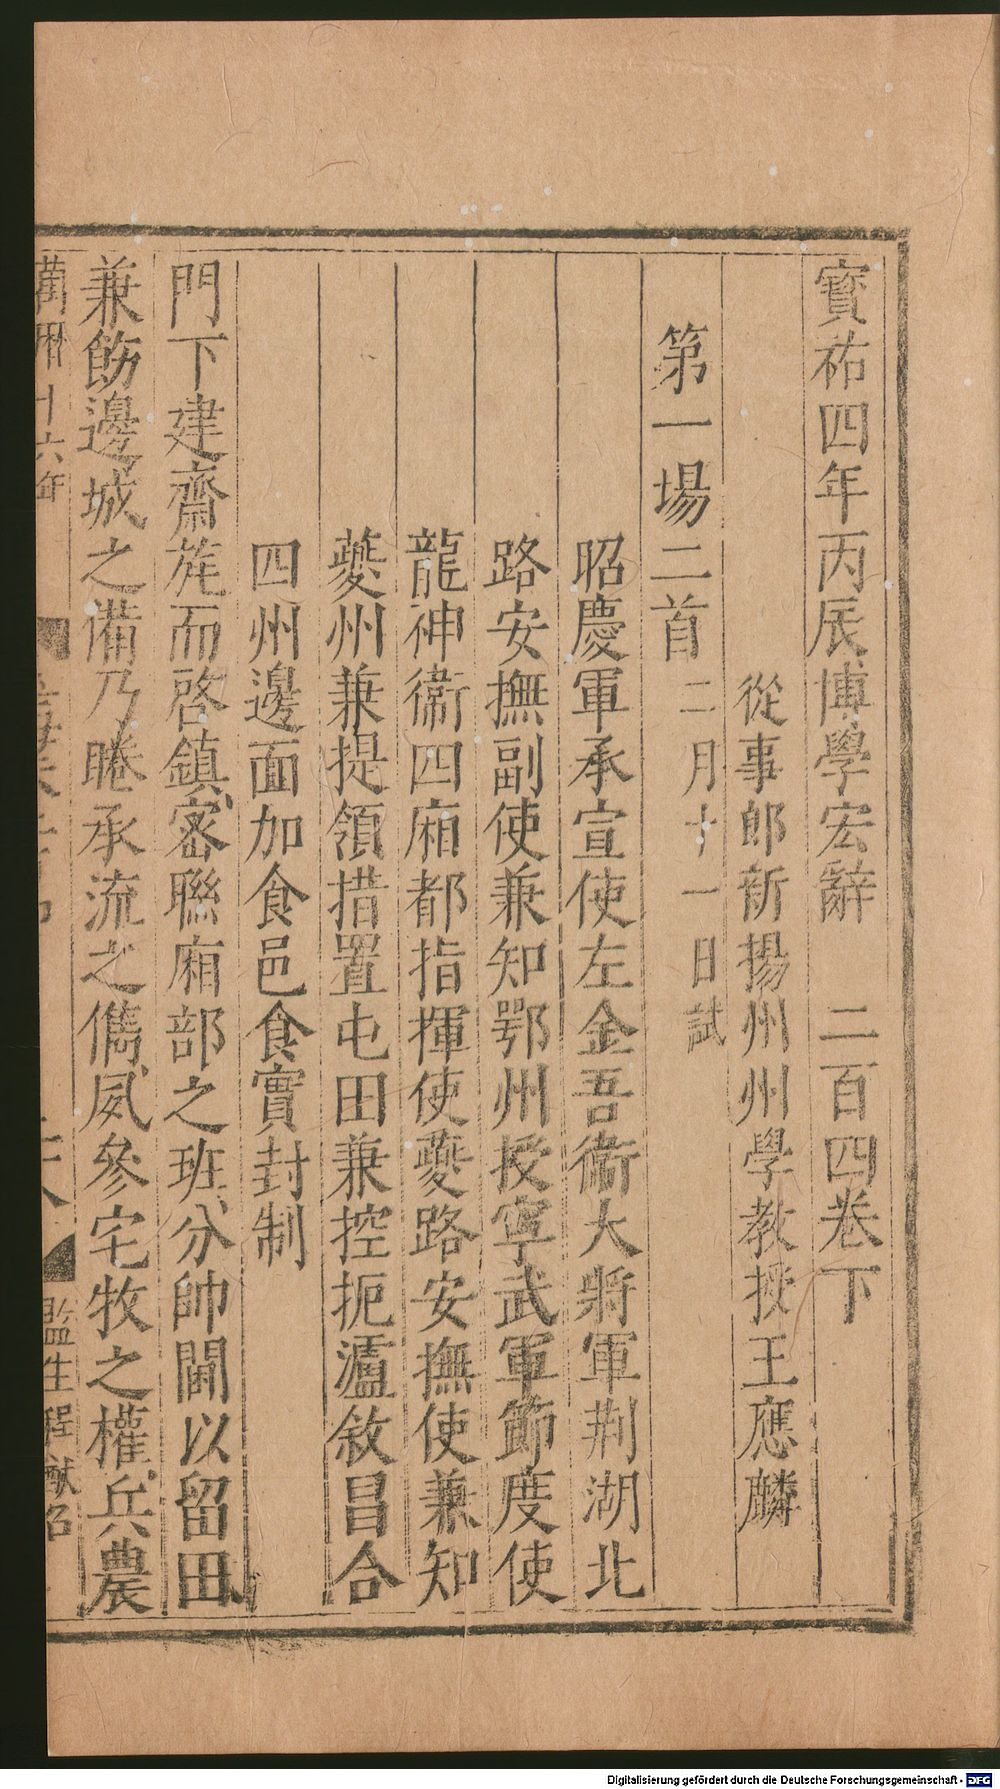 寳祐四年丙辰博學宏辭　二百四卷下
從事郎新揚州州學教授王應麟
第一場二首二月十一日試
昭慶軍承宣使左金吾衞大將軍荆湖北
路安撫副使兼知鄂州授寧武軍節度使
龍神衞四廂都指揮使夔路安撫使兼知
夔州兼提領措置屯田兼控扼瀘敘昌合
四州邊面加食邑食實封制
門下建齋旄而啓鎮、密聯廂部之班、分帥閫以留田、
兼飭邊城之備乃睠承流之儁、威參宅牧之權、兵農
萬曆十六年
監生程
Digitalisierung gefördert durch die Deutsche Forschungsgemeinschaft - DFG